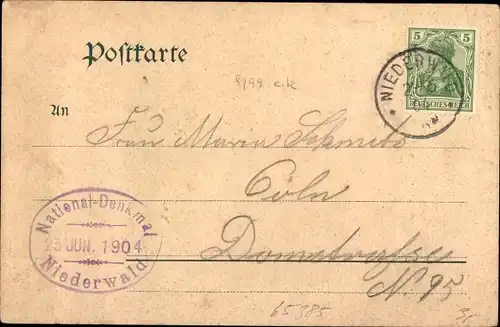 Postkarte
5 5
DEUTSCHES REICH
NIEDERW
8/99 e.k
An
Frau Maria Schmitz
Cöln
Domstrasse
N. 95
National-Denkmal
23 JUN. 1904
Niederwald
65385